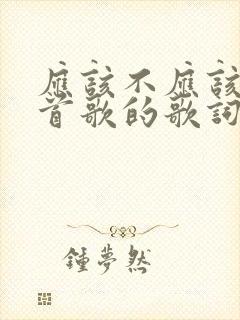 應該不應該
首歌的歌詞
鍾夢然